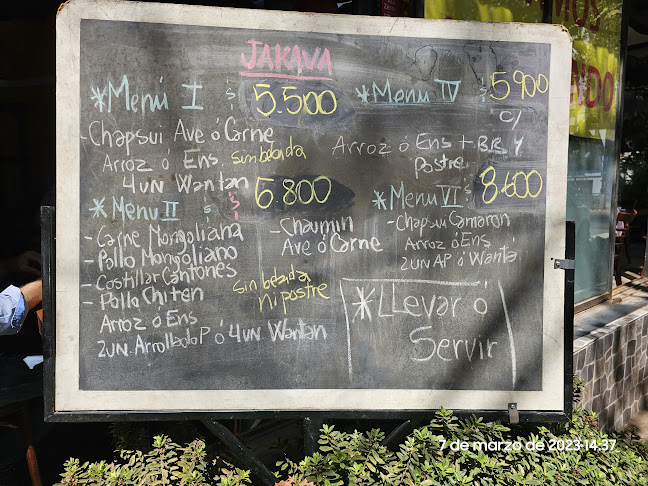 JAKAVA
*Menú I $ 5.500
-Chapsui Ave ó Carne
Arroz ó Ens. sin bebida
4 un Wantan
*Menu II $ 6.800
-Carne Mongoliana
-Pollo Mongoliano
-Costillar Cantones
-Pollo Chiten
Arroz ó Ens
2un. Arrollado P ó 4 un. Wantan
-Chaumin
Ave ó Carne
sin bebida
ni postre
*Menu IV $ 5900
c/
Arroz ó Ens + BB. Y
Postre
*Menu VI $ 8.600
-Chapsui Camaron
Arroz ó Ens
2un AP ó Wantan
*Llevar ó
Servir
7 de marzo de 2023 14:37